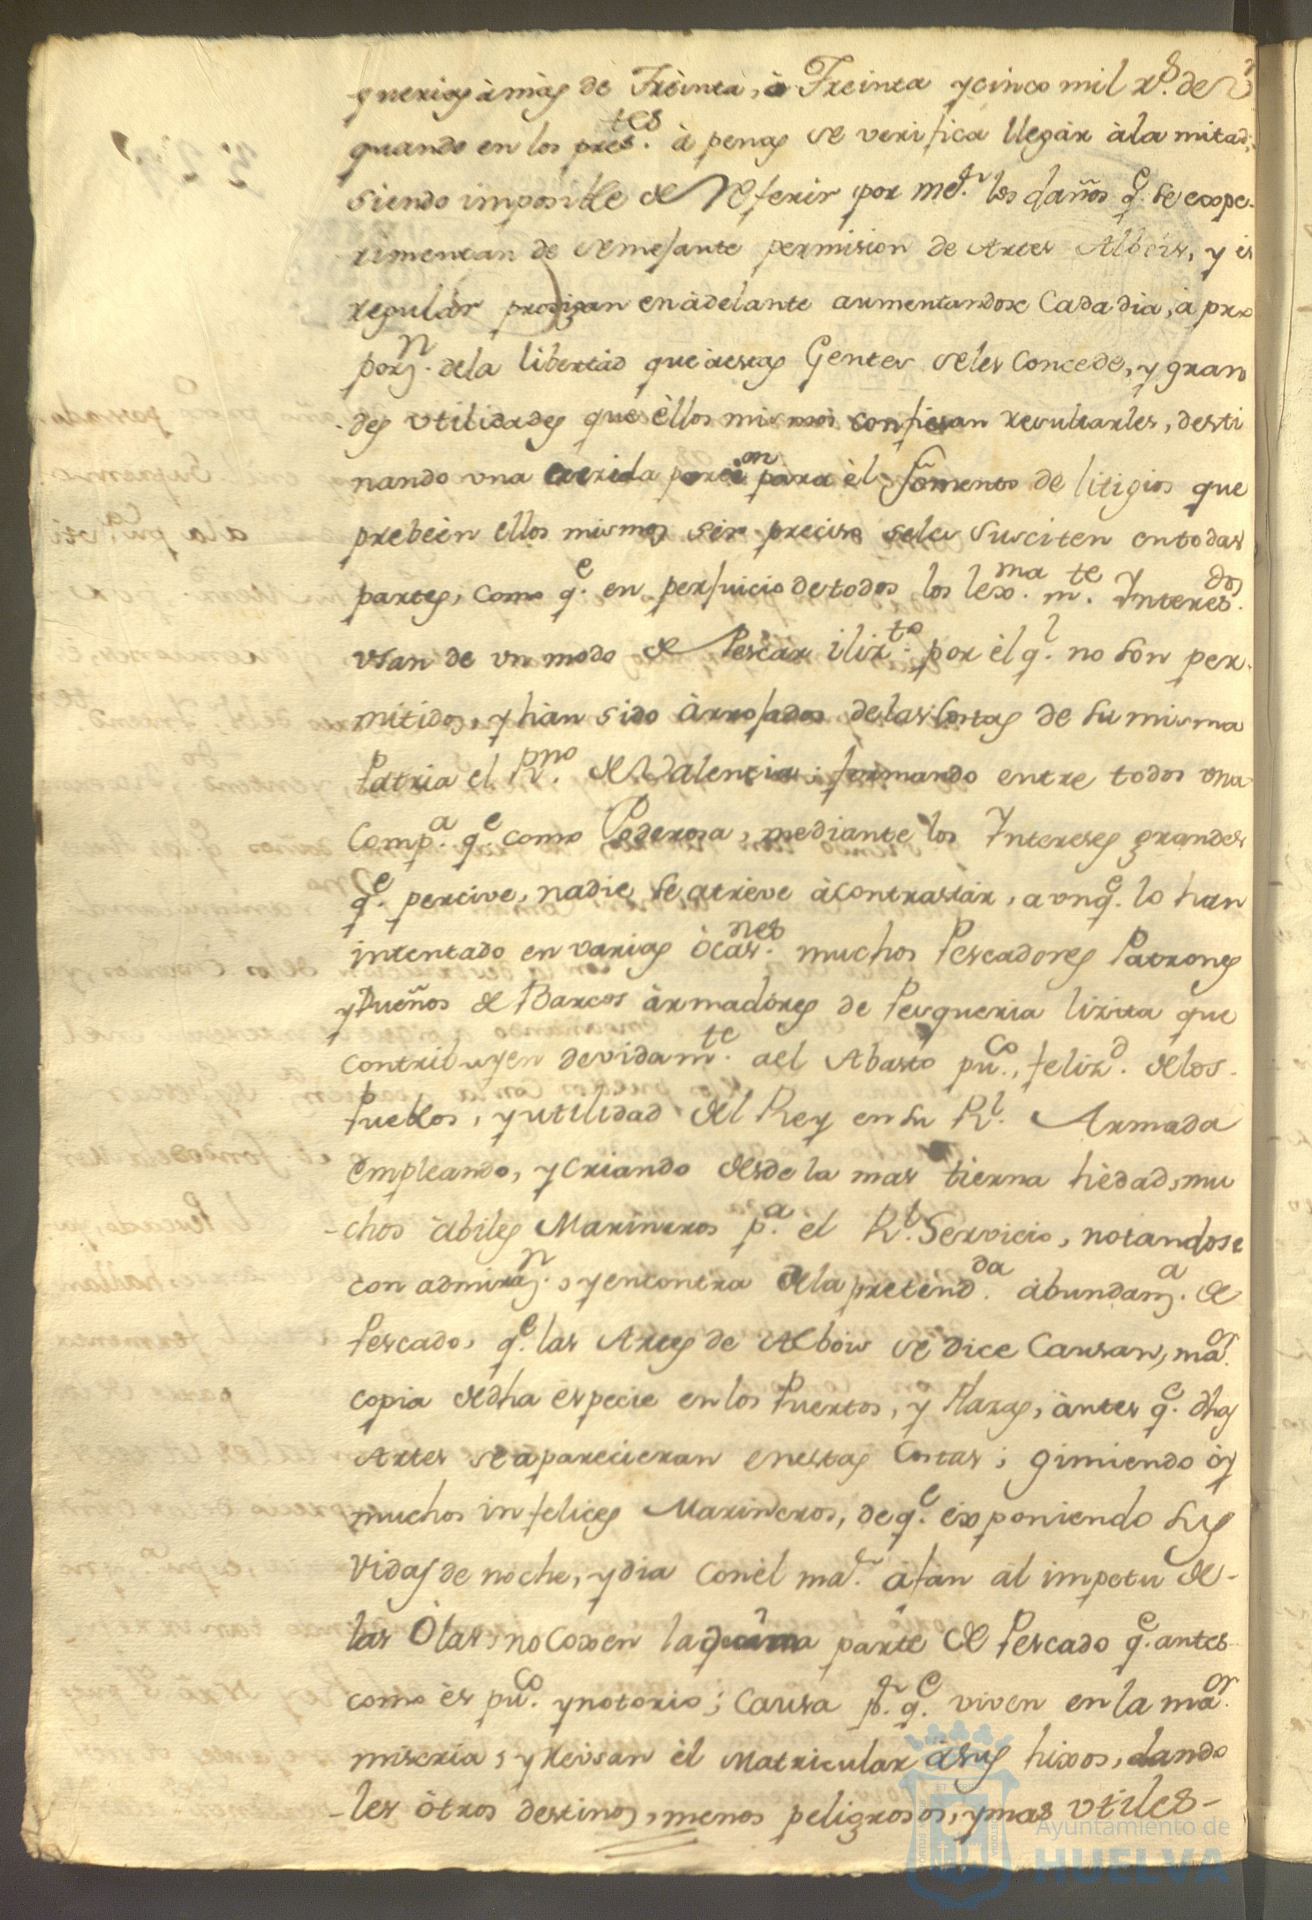 querias à màs de Treinta, à Treinta y cinco mil rs. de vn
quando en los prestes. à penas se verifica llegàr à la mitad,
siendo imposible de Referir por mer. los daños qe. se expe-
rimentan de semejante permision de Artes Alböis, y es
regulàr prosigan en àdelante aumentandose Cada dia, à pro
porn. de la libertad que à estas Gentes se les Concede, y gran
des utilidades que èllos mismos confiesan resultarles, desti
nando una crecida porcion para èl fomento de litigios que
prebeèn ellos mismos sèr preciso se les susciten en todas
partes, como qe. en perjuicio de todos los lexma. mte. Interesdos.
usan de un modo de Pescar ilizto. por èl ql. no son per-
mitidos, y hàn sido àrrojados de las Costas de su misma
Patria el Rno. de Valencia; formando entre todos una
Compa. qe. como Poderosa, mediante los Intereses grandes
qe. percive, nadie se atrève à contrastàr, aunqe. lo han
intentado en varias òcasnes. muchos Pescadores Patrones
y Dueños de Barcos àrmadóres de Pesqueria lizita que
contribuyen devidamte. a el Abasto puco., felizd. de los
Pueblos, y utilidad del Rey en su Rl. Armada
empleando, y criando desde la mas tierna hèdad, mu
-chos àbiles Marineros pa. el Rl. Servicio, notandose
con admiran., y encontra de la pretendda. àbundana. de
Pescado, qe. las Artes de Albois se dice Causan, maor.
copia de dha èspecie en los Puertos, y Plazas, àntes qe. dhas
Artes se àparecieran en estas Costas; gimiendo òy
muchos infelices Marineros, de qe. exponiendo sus
vidas de noche, y dia con èl mar. àfàn àl impetu de-
las Olas, no Coxen la quinta parte de Pescado qe. antes
como ès puco. y notorio; Causa pr. qe. viven en la maor.
miseria, y Reusan èl Matricular à sus hixos, dando
-les òtros destinos, menos peligrosos, y mas utiles-
Ayuntamiento de
HUELVA